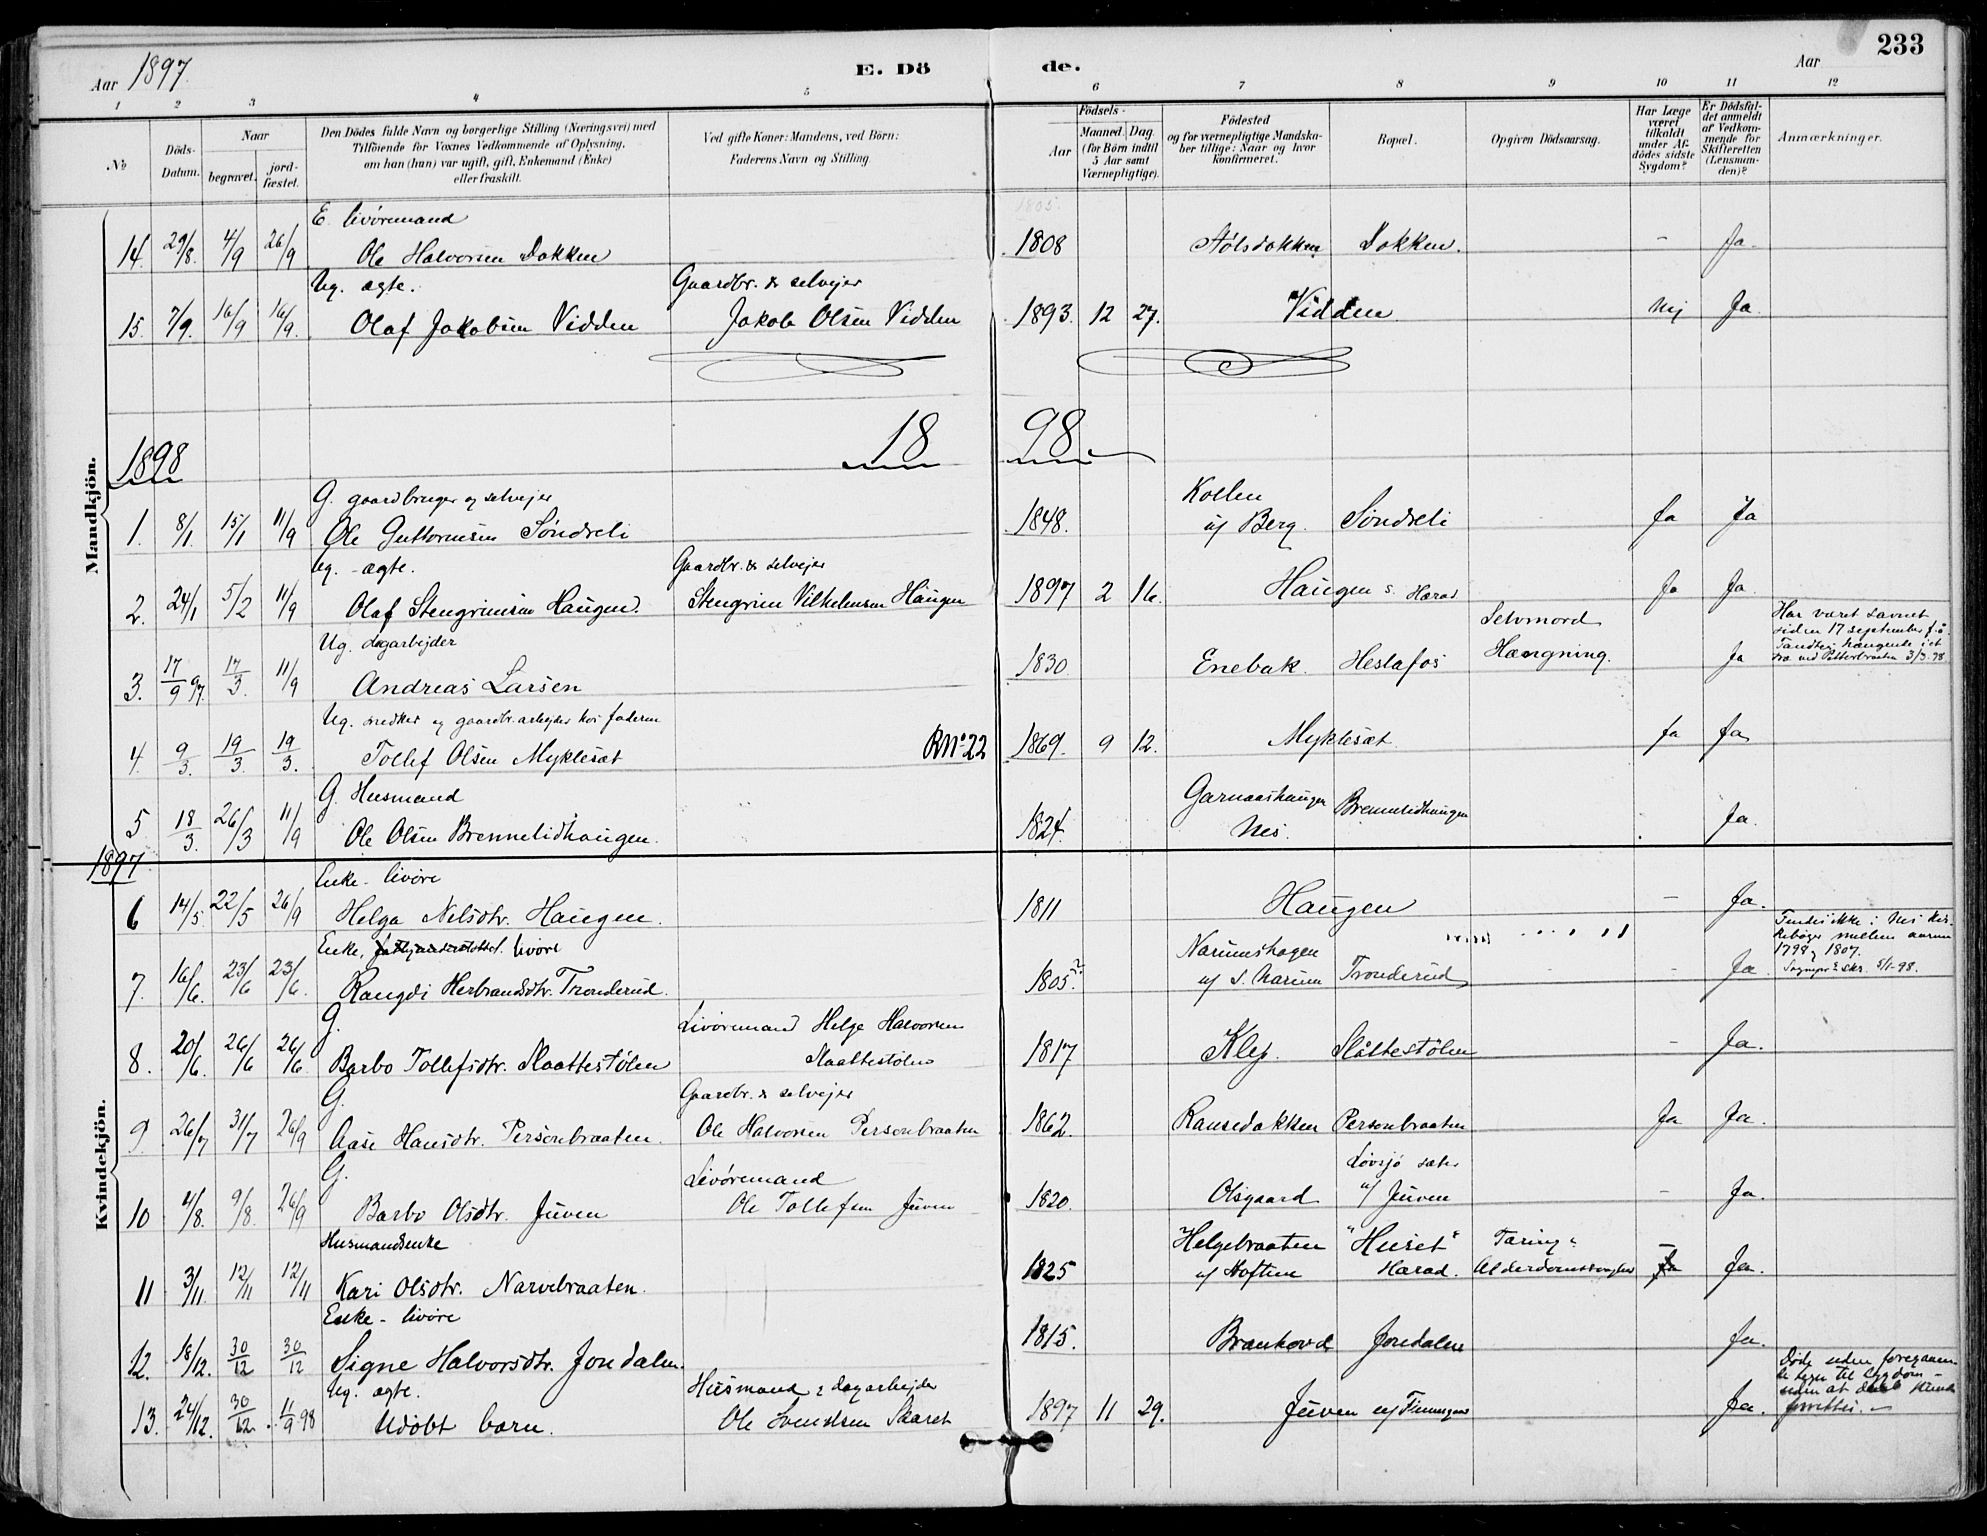 233
Aar 1897.
E. Dö
de.
Aar
1 2 3 4 5 6 7 8 9 10 11 12
No
Döds-Datum.
Naar
begravet.
jord-fæstet.
Den Dödes fulde Navn og borgerlige Stilling (Næringsvei) med
Tilföiende for Voxnes Vedkommende af Oplysning,
om han (hun) var ugift, gift, Enkemand (Enke)
eller fraskilt.
Ved gifte Koner: Mandens, ved Börn:
Faderens Navn og Stilling.
Födsels-
Aar
Maaned. Dag.
(for Börn indtil
5 Aar samt
Værnepligtige).
Födested
og for værnepligtige Mandska-
ber tillige: Naar og hvor
konfirmeret.
Bopæl.
Opgiven Dödsaarsag.
Har Læge
været
tilkaldt
under Af-
dödes sidste
Sygdom?
Er Dödsfal-
det anmeldt
af Vedkom-
mende for
Skifteretten
(Lensman-
den)?
Anmærkninger.
Mandkjön.
E. livöremand 1805.
14. 29/8. 4/9 26/9 Ole Halvorsen Dokken 1808 Stölsdokken Dokken. - Ja.
Ug. ægte. Gaardbr. & selvejer
15. 7/9. 16/9 16/9. Olaf Jakobsen Vidden Jakob Olsen Vidden 1893. 12 27. Vidden Nej Ja.
1898 18 98
G. gaardbruger og selvejer Kollen
1. 8/1. 15/1 11/9 Ole Guttormsen Söndreli 1848. u/ Berg. Söndreli Ja Ja
Ug. - ægte. Gaardbr. & selvejer
2. 24/1 5/2 11/9 Olaf Stengrimsen Haugen. Stengrim Vilhelmsen Haugen 1897 2 16. Haugen s. Herad Ja Ja.
Ug. dagarbejder Selvmord Har været savnet
siden 17 september f. å.
3. 17/9 97. 17/3. 11/9 Andreas Larsen 1830 Enebak. Heslafos Hængning. Ja Fandtes hængende i et
træ ved Petterbraaten 3/3. 98.
Ug. snedker og gaardbr. arbejder hos faderen
4. 9/3. 19/3. 19/3. Tollef Olsen Myklesæt R No 22 1869. 9 12. Myklesæt Ja Ja
G. Husmand Garnaashaugen Brennelidhaugen
5 18/3. 26/3 11/9 Ole Olsen Brennelidhaugen. 1824. Nes. Ja.
1897
Kvindekjön.
Enke - livöre
6 14/5 22/5 26/9 Helga Nilsdtr. Haugen. 1811 Haugen - Ja.
Enke, livöre Narumshagen Findes ikke i Nes Kir-
kebøger mellem aarene
1798 og 1807.
7. 16/6. 23/6 23/6. Rangdi Herbrandsdtr. Tronderud. 1805? u/ S. Narum Tronderud - Ja Sognepr. skr. 5/1-98.
G. Livöremand Helge Halvorsen
8. 20/6. 26/6 26/6. Barbo Tollefsdtr. Slaattestölen Slaattestölen 1817 Klej. Slåttestölen - Ja.
G. Gaardbr. & selvejer
9. 26/7 31/7 26/9 Aase Hansdtr. Persenbraaten. Ole Halvorsen Persenbraaten 1862. Ransedokken Persenbraaten Ja Ja.
G. Livöremand Lövsjö sæter
10 4/8. 9/8. 26/9 Barbo Olsdtr. Juven Ole Tollefsen Juven 1820. Olsgaard u/ Juven - Ja.
Husmandsenke Helgebraaten "Huset" Tæring &
11 3/11. 12/11 12/11 Kari Olsdtr. Narvebraaten. 1825 u/ Hoftun Herad. Alderdomssvaghed - Ja Ja.
Enke - livöre
12. 18/12. 30/12 30/12 Signe Halvorsdtr. Jondalen. 1815. Branhovd Jondalen Ja.
Ug. ægte. Husmand & dagarbejder Döde uden foregaaen-
de tegn til sygdom -
uden at daab kunde
forrettes. -
13. 24/12. 30/12 11/9 98 Udöbt barn. Ole Svendsen Skaret 1897 11 29. Juven u/ Ja.